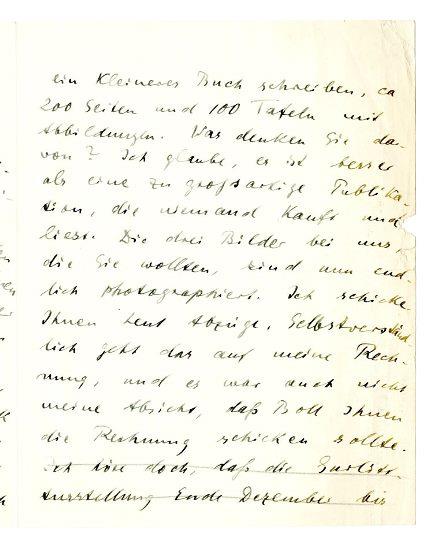 ein kleineres Buch schreiben, ca
200 Seiten und 100 Tafeln mit
Abbildungen. Was denken Sie da-
von? Ich glaube, es ist besser
als eine zu großartige Publika-
tion, die niemand kauft und
liest. Die drei Bilder bei uns,
die Sie wollten, sind nun end-
lich photographiert. Ich schicke
Ihnen heut Abzüge. Selbstverständ
lich geht das auf meine Rech-
nung, und es war auch nicht
meine Absicht, daß Boll Ihnen
die Rechnung schicken sollte.
Ich höre doch, daß die
Ausstellung Ende Dezember bis